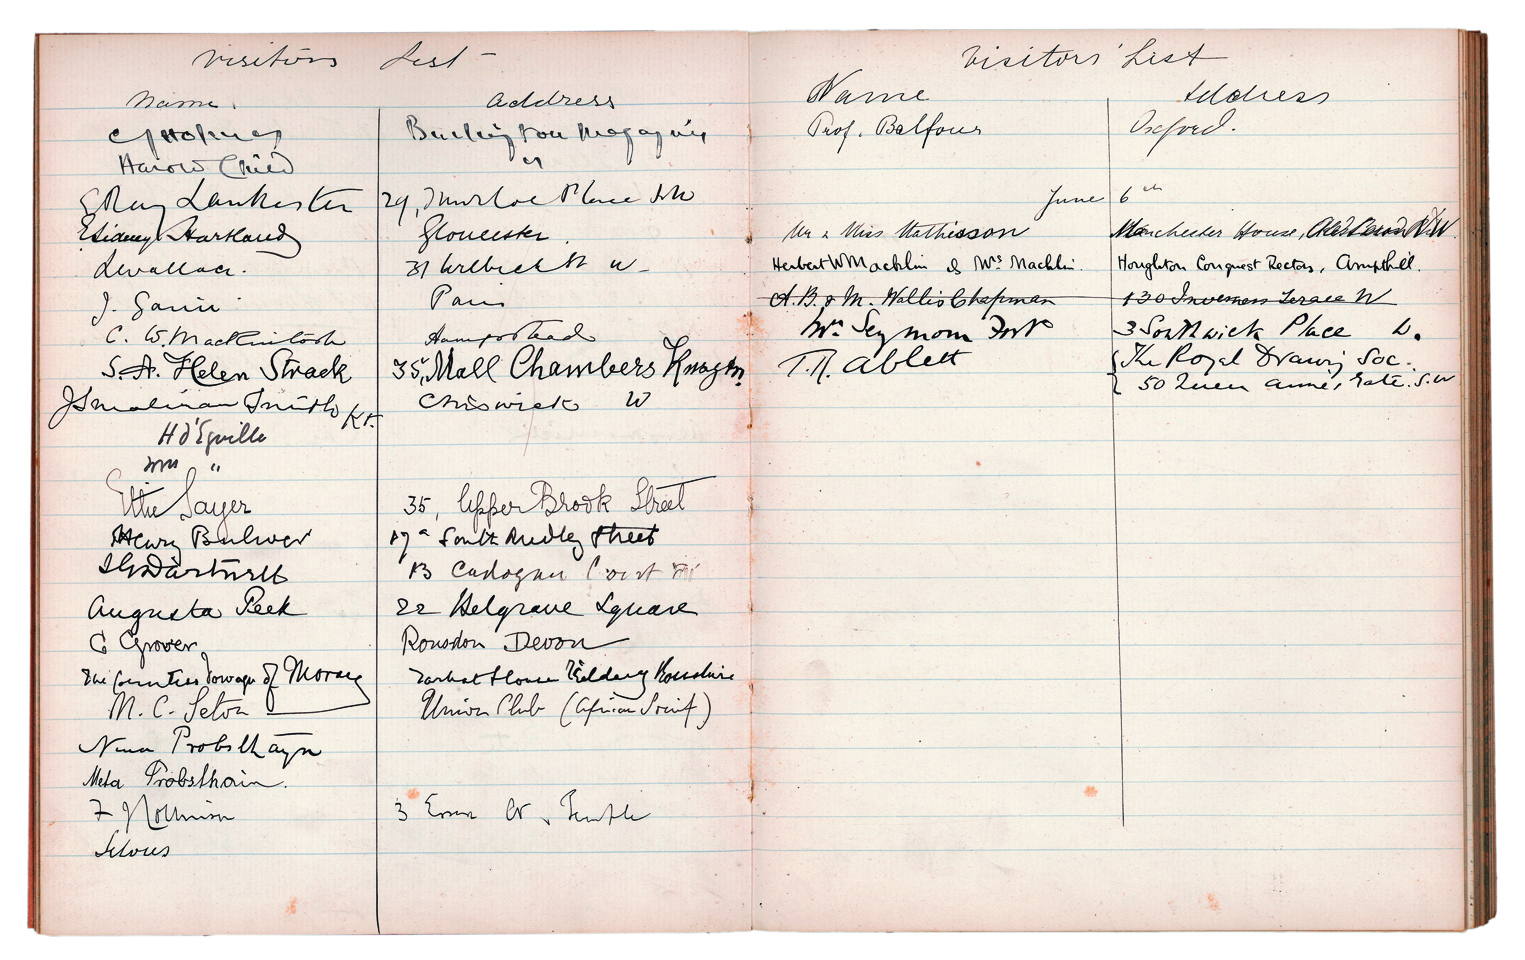 Visitors List
Name. Address
C J Holmes Burlington Magazine
Harold Child "
E Ray Lankester 29, Thurloe Place SW
E Sidney Hartland Gloucester.
L Wallace. 31 Welbeck St W
J. Paris
C. W. Mackintosh Hampstead
S. A. Helen Strack 35, Mall Chambers Kensgtn
Smith Kt. Chiswick W
H d'Egville
Mrs "
Ettie Sayer 35, Upper Brook Street
Henry Bulwer 17a South Audley Street
13 Cadogan Court
Augusta Peek 22 Belgrave Square
C Grover, Rousdon Devon
The Countess Dowager of Moray Tarbat House Kildary Rossshire
M. C. Seton Union Club (African Socy)
Nina Probsthayn
Meta Probsthain.
3 Essex Ct, Temple
Selous
Visitors' List
Name Address
Prof. Balfour Oxford.
June 6th
Mr & Miss Mathieson Manchester House, N.W.
Herbert W Macklin & Mrs Macklin. Houghton Conquest Rectory, Ampthill.
A. B. & M. Wallis Chapman 130 Inverness Terrace W
Mrs Seymour Fort 3 Southwick Place
T. R. Ablett The Royal Drawing Soc.
50 Queen Anne's Gate. S.W